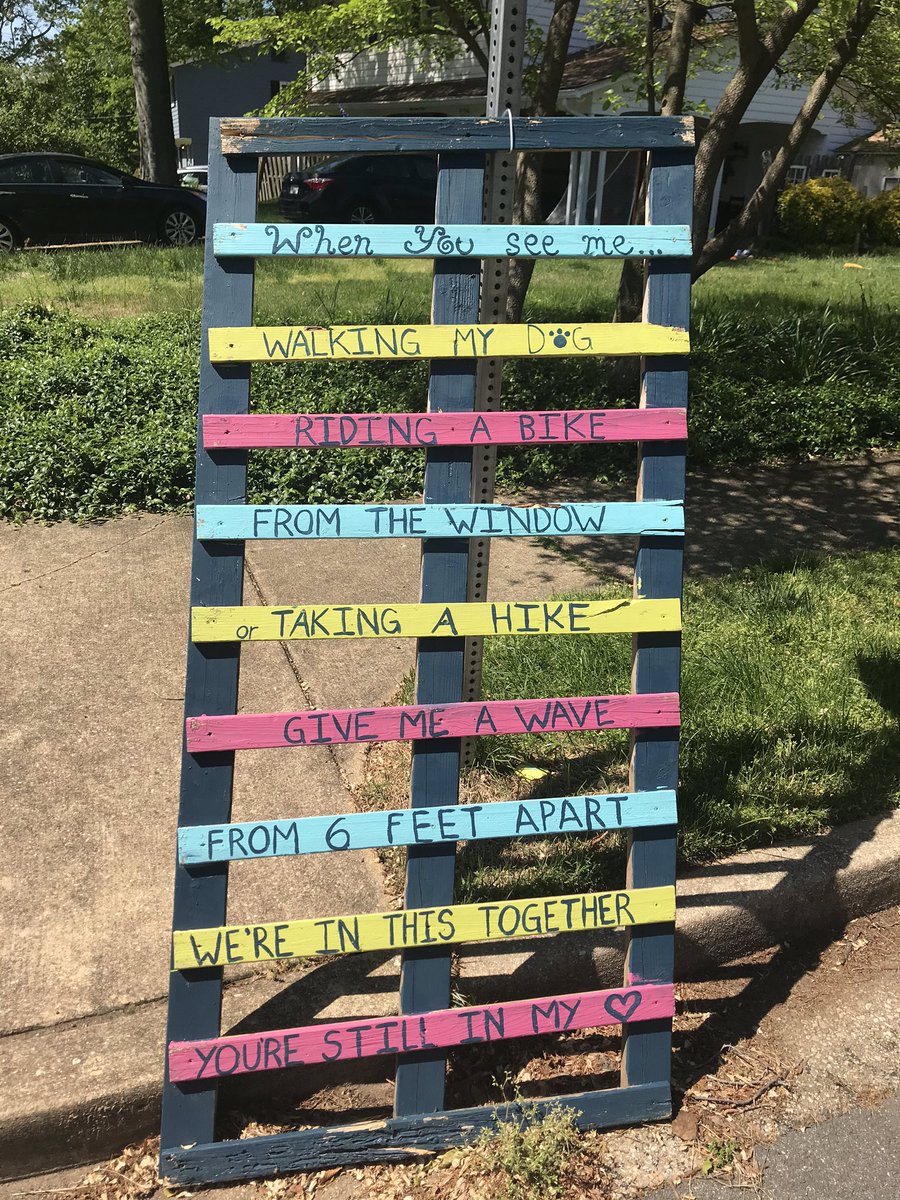 When You see me...
WALKING MY DOG
RIDING A BIKE
FROM THE WINDOW
or TAKING A HIKE
GIVE ME A WAVE
FROM 6 FEET APART
WE'RE IN THIS TOGETHER
YOU'RE STILL IN MY ♡